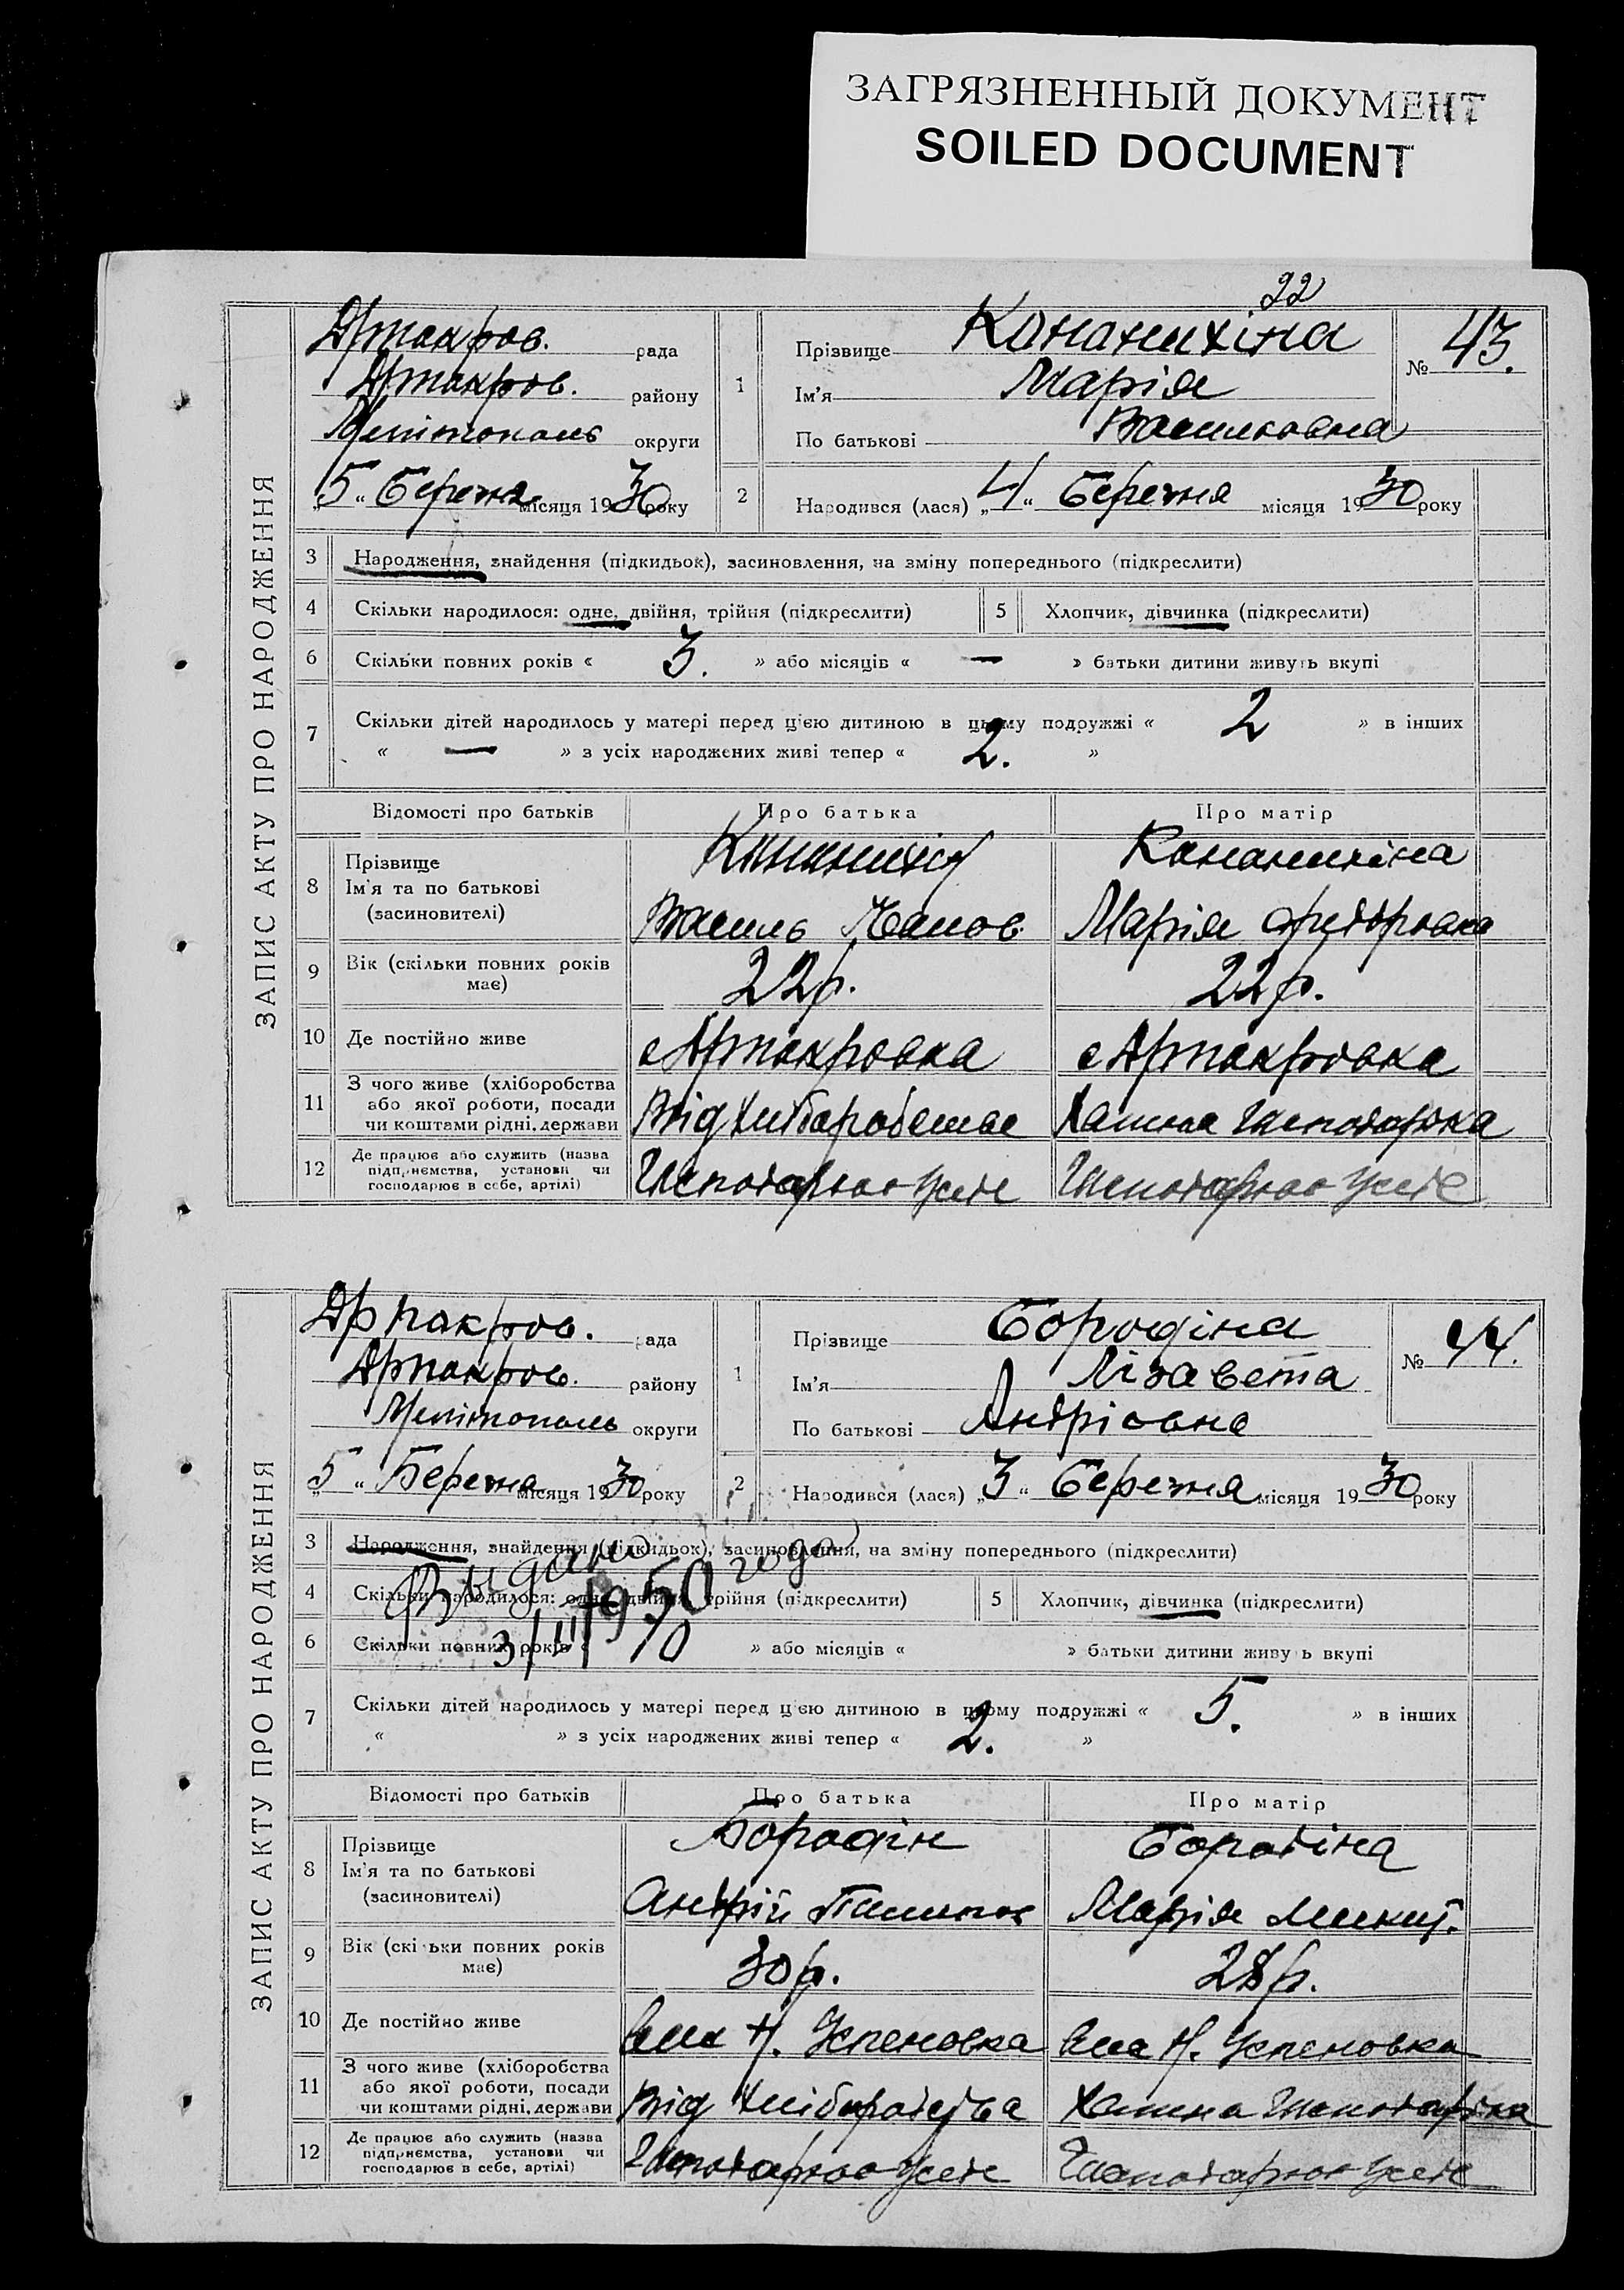 ЗАГРЯЗНЕННЫЙ ДОКУМЕНТ
SOILED DOCUMENT
22
ЗАПИС АКТУ ПРО НАРОДЖЕННЯ
рада
району
Мелітополь округи
5 " Березня місяця 1930 року
1
Прізвище Кананихіна
Ім'я Марія
По батькові Васильовна
№ 43.
2
Народився (лася) „4" Березня місяця 1930 року
3 Народження, знайдення (підкидьок), засиновлення, на зміну попереднього (підкреслити)
4 Скільки народилося: одне, двійня, трійня (підкреслити)
5 Хлопчик, дівчинка (підкреслити)
6 Скільки повних років « 3. » або місяців « — » батьки дитини живуть вкупі
7 Скільки дітей народилось у матері перед цією дитиною в цьому подружжі « 2 » в інших
« — » з усіх народжених живі тепер « 2. »
Відомості про батьків Про батька Про матір
8 Прізвище
Ім'я та по батькові
(засновителі)
Кананихін
Василь
Кананихіна
Марія
9 Вік (скільки повних років
має)
22 р. 22 р.
10 Де постійно живе
11 З чого живе (хліборобства
або якої роботи, посади
чи коштами рідні, держави
Від хлібаробства Хатння гасподарка
12 Де працює або служить (назва
підприємства, установи чи
господарює в себе, артілі)
Гасподарює у себе Гасподарює у себе
ЗАПИС АКТУ ПРО НАРОДЖЕННЯ
рада
району
Мелітополь округи
„5 " Березня місяця 1930 року
1
Прізвище Бородіна
Ім'я Лізавета
По батькові Андріовна
№ 44.
2
Народився (лася) „3" Березня місяця 1930 року
3 Народження, знайдення (підкидьок), засиновлення, на зміну попереднього (підкреслити)
4 Скільки народилося: одне, двійня, трійня (підкреслити)
5 Хлопчик, дівчинка (підкреслити)
Выдано
3/III 1950 года
6 Скільки повних років « 10 » або місяців « » батьки дитини живуть вкупі
7 Скільки дітей народилось у матері перед цією дитиною в цьому подружжі « 5. » в інших
« » з усіх народжених живі тепер « 2. »
Відомості про батьків Про батька Про матір
8 Прізвище
Ім'я та по батькові
(засиновителі)
Бородін
Андрій
Бородіна
Марія Микит.
9 Вік (скільки повних років
має)
30 р. 28 р.
10 Де постійно живе
Н. Успеновка Н. Успеновка
11 З чого живе (хліборобства
або якої роботи, посади
чи коштами рідні, держави
Від хлібаробства Хатнна гасподарка
12 Де працює або служить (назва
підприємства, установи чи
господарює в себе, артілі)
Гасподарює у себе Гасподарює у себе